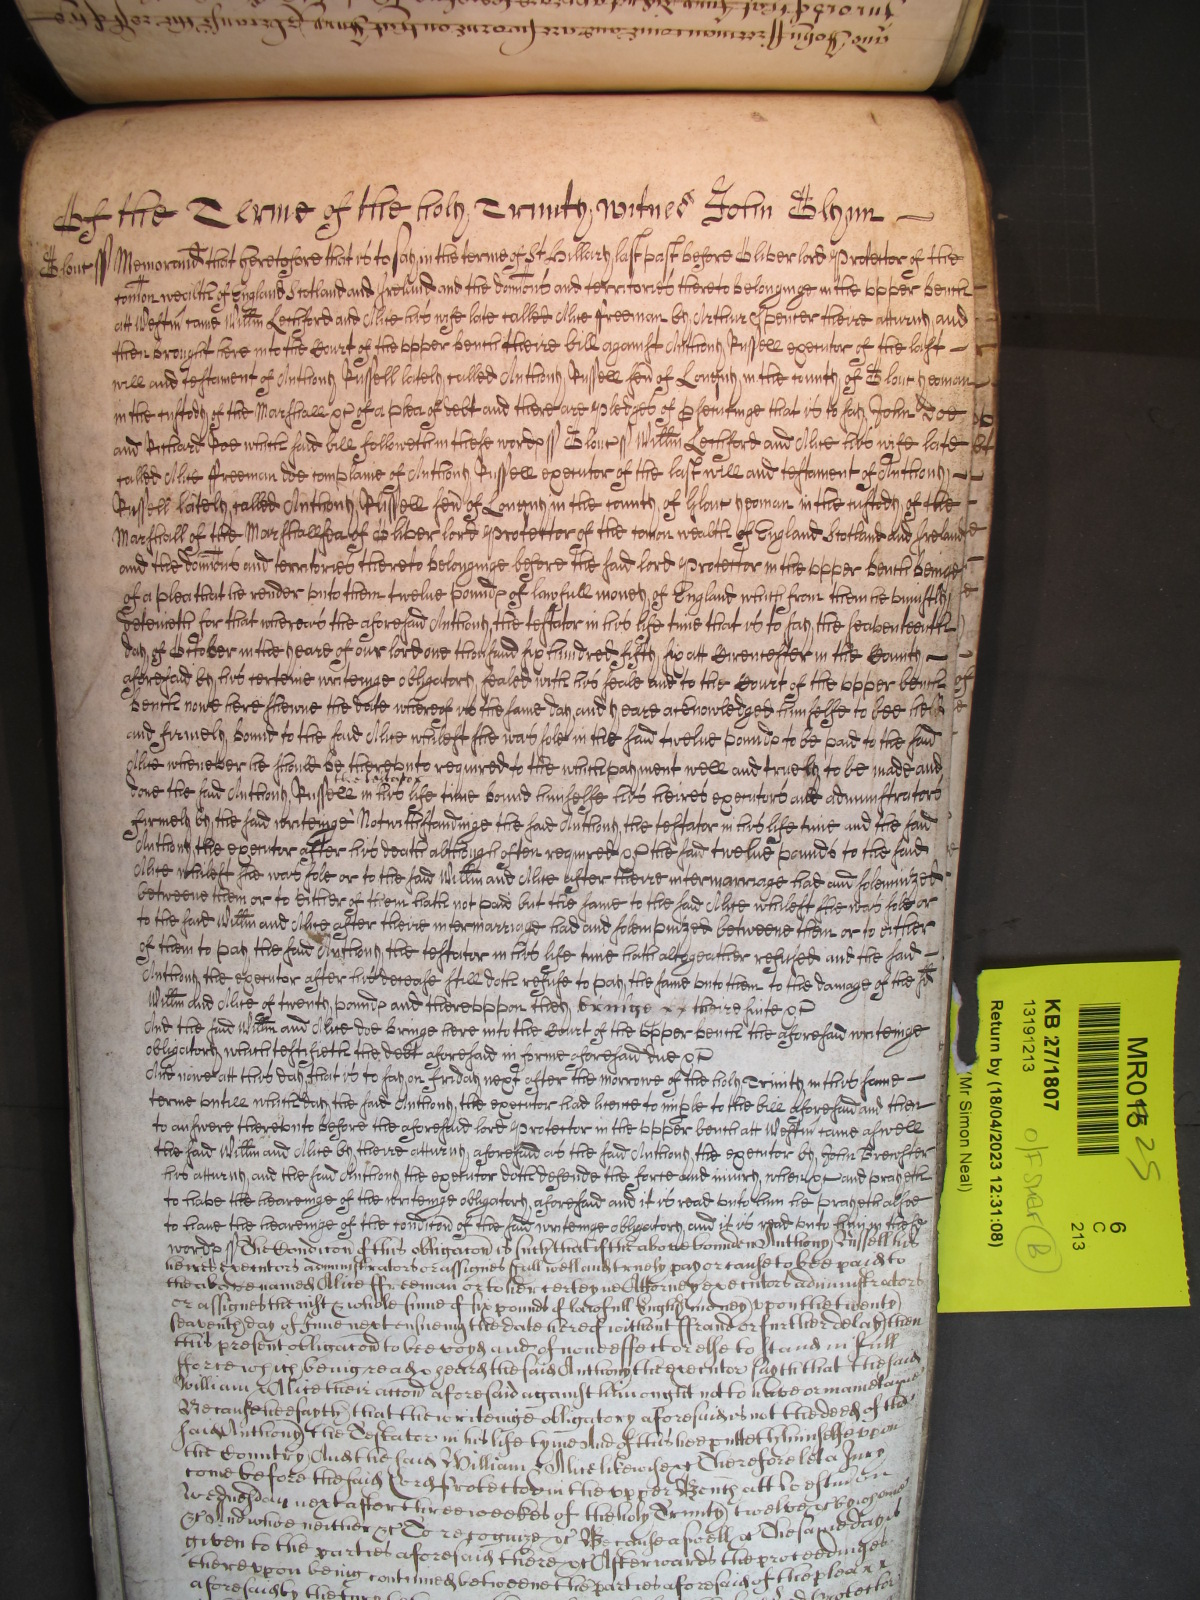 Of the Terme of the holy Trinity witnes John Glynn
Glouc ss Memorand that heretofore that is to say in the terme of St Hillary last past before Oliver lord Protector of the
comon wealth of England Scotland and Ireland and the dominions and territories thereto belonginge in the upper bench
att Westm came Willm Letchford and Alice his wife late called Alice Freeman by Arthur Spencer theire atturny and
then brought here into the Court of the upper bench theire bill against Anthony Russell executor of the last
will and testament of Anthony Russell lately called Anthony Russell sen of in the county of Glouc yeoman
in the custody of the Marshall &c of a plea of debt and there are pledges of prosecutinge that is to say John Doe
and Richard Roe which said bill followeth in these words ss Glouc ss Willm Letchford and Alice his wife late
called Alice Freeman doe complaine of Anthony Russell executor of the last will and testament of Anthony
Russell lately called Anthony Russell sen of in the county of Glouc yeoman in the custody of the
Marshall of the Marshallsea of Oliver lord Protector of the comon wealth of England Scotland and Ireland
and the dominions and territories thereto belonginge before the said lord Protector in the upper bench beinge
of a plea that he render unto them twelve pounds of lawfull money of England which from them he uniustly
deteineth for that whereas the aforesaid Anthony the testator in his life time that is to say the seaventeenth
day of October in the yeare of our lord one thousand six hundred fifty six att Cirencester in the County
aforesaid by his certeine writeinge obligatory sealed with his seale and to the Court of the upper bench
bench nowe here shewne the date whereof is the same day and yeare acknowledged himselfe to bee held
and firmely bound to the said Alice whilest she was sole in the said twelve pounds to be paid to the said
Alice whenever he should be thereunto required to the which payment well and truely to be made and
the testator
done the said Anthony Russell in his life time bound himselfe his heires executors and administrators
firmely by the said writeinge Notwithstandinge the said Anthony the testator in his life time and the said
Anthony the executor after his death although often required &c the said twelve pounds to the said
Alice whilest she was sole or to the said Willm and Alice after theire intermarriage had and solemnized
betweene them or to either of them hath not paid but the same to the said Alice whilest she was sole or
to the said Willm and Alice after theire intermarriage had and solempnized betweene them or to either
of them to pay the said Anthony the testator in his life time hath altogeather refused and the said
Anthony the executor after his decease still doth refuse to pay the same unto them to the damage of the sd
Willm and Alice of twenty pounds and thereuppon they bringe theire suite &c
And the said Willm and Alice doe bringe here into the Court of the upper bench the aforesaid writeinge
obligatory which testifieth the debt aforesaid in forme aforesaid due &c
And nowe att this day that is to say on Friday next after the morrowe of the holy Trinity in this same
terme untill which day the said Anthony the executor had licence to imple to the bill aforesaid and then
to answere thereunto before the aforesaid lord Protector in the upper bench att Westm came aswell
the said Willm and Alice by theire atturny aforesaid as the said Anthony the executor by John Brewster
his atturny and the said Anthony the executor doth defende the force and iniury when &c and prayeth
to have the heareinge of the writeinge obligatory aforesaid and it is read unto him he prayeth alsoe
to have the heareinge of the condicon of the said writeinge obligatory and it is read unto him in these
words ss The Condicon of this obligacon is such that if the above bounden Anthony Russell his
heires executors administrators or assignes shall well and truely pay or cause to bee paid to
the above named Alice Freeman or to her certeyne Attorney executors administrators
or assignes the iust & whole sume of six pounds of lawfull English money upon the twenty
seaventh day of June next ensueing the date hereof without ffraud or further delay then
this present obligacon to bee voyd and of none effect or else to stand in full
fforce which being read & heard the said Anthony the executor sayth that the said
William & Alice their accon aforesaid against him ought not to have or mainetayne
Because hee sayth that the writeinge obligatory aforesaid is not the deed of the
said Anthony the Testator in his life tyme And of this hee putteth himselfe upon
the Country And the said William & Alice likewise &c Therefore let a Jury
come before the said Lord Protector in the upper Bench att Westmon
Wednesday next after three weekes of the holy Trinity twelve &c by whome
&c And who neither &c To recognize &c Because aswell &c The same day is
given to the parties aforesaid there &c Afterwards the proceedinges
thereupon being continued betweene the parties aforesaid of the plea
aforesaid by the Jury
MR01 25
6
C
213
KB 27/1807
13191213
Return by (18/04/2023 12:31:08)
(Mr Simon Neal)